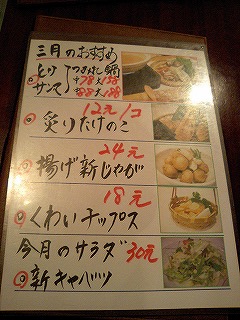 三月のおすすめ
とり つみれ鍋
サンマ
12元/コ
炙りたけのこ
24元
揚げ新じゃが
18元
くわいチップス
今月のサラダ 30元
新キャベツ